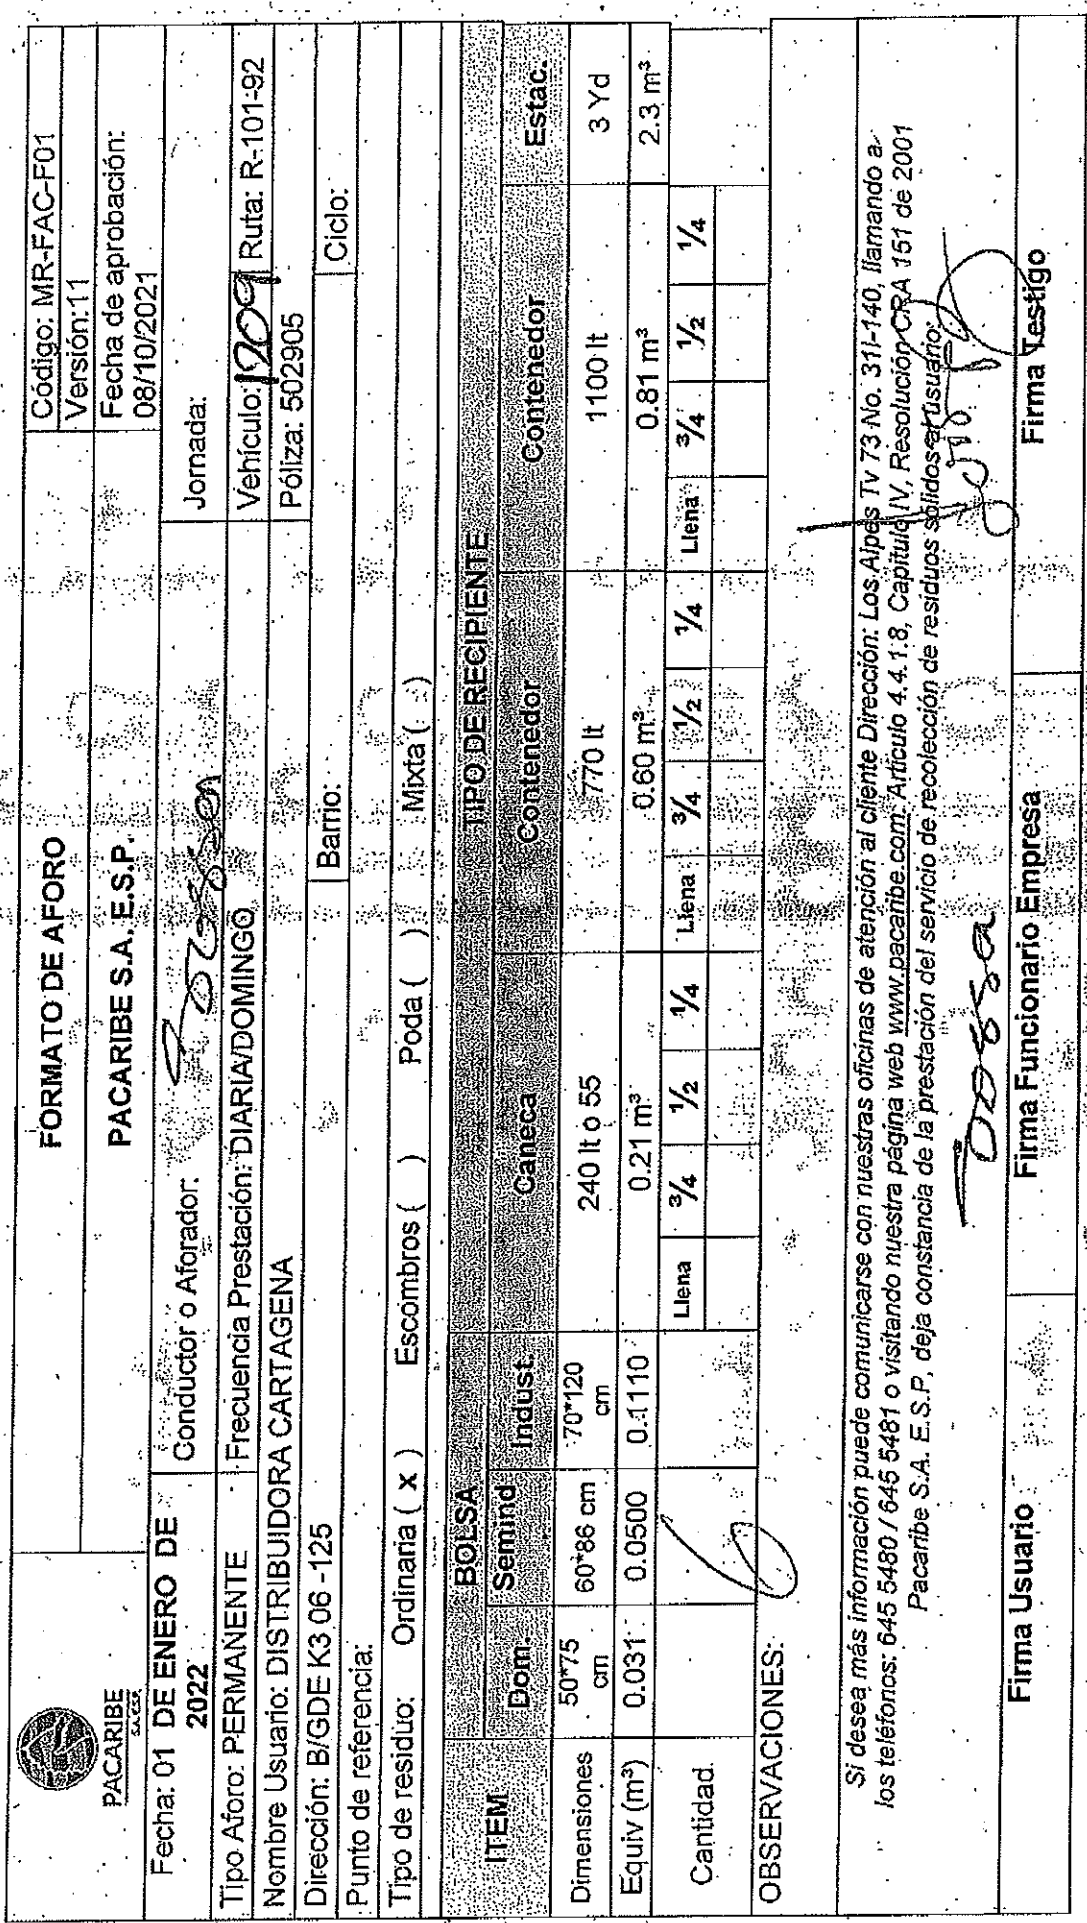 FORMATO DE AFORO
Código: MR-FAC-F01
Versión:11
PACARIBE
S.A. E.S.P.
PACARIBE S.A. E.S.P.
Fecha de aprobación:
08/10/2021
Fecha: 01 DE ENERO DE
2022
Conductor o Aforador:
Jornada:
Tipo Aforo: PERMANENTE
Frecuencia Prestación: DIARIA/DOMINGO
Vehículo: 1209
Ruta: R-101-92
Nombre Usuario: DISTRIBUIDORA CARTAGENA
Póliza: 502905
Dirección: B/GDE K3 06 -125
Barrio:
Ciclo:
Punto de referencia:
Tipo de residuo: Ordinaria ( x ) Escombros ( ) Poda ( ) Mixta ( )
ITEM
BOLSA
TIPO DE RECIPIENTE
Dom. Semind Indust. Caneca Contenedor Contenedor Estac.
Dimensiones 50*75 cm 60*86 cm 70*120 cm 240 lt o 55 770 lt 1100 lt 3 Yd
Equiv (m³) 0.031 0.0500 0.1110 0.21 m³ 0.60 m³ 0.81 m³ 2.3 m³
Cantidad 6 Llena ¾ ½ ¼ Llena ¾ ½ ¼ Llena ¾ ½ ¼
OBSERVACIONES:
Si desea más información puede comunicarse con nuestras oficinas de atención al cliente Dirección: Los Alpes Tv 73 No. 31I-140, llamando a
los teléfonos: 645 5480 / 645 5481 o visitando nuestra página web www.pacaribe.com. Artículo 4.4.1.8, Capítulo IV, Resolución CRA 151 de 2001
Pacaribe S.A. E.S.P, deja constancia de la prestación del servicio de recolección de residuos sólidos al usuario.
Firma Usuario
Firma Funcionario Empresa
Firma Testigo